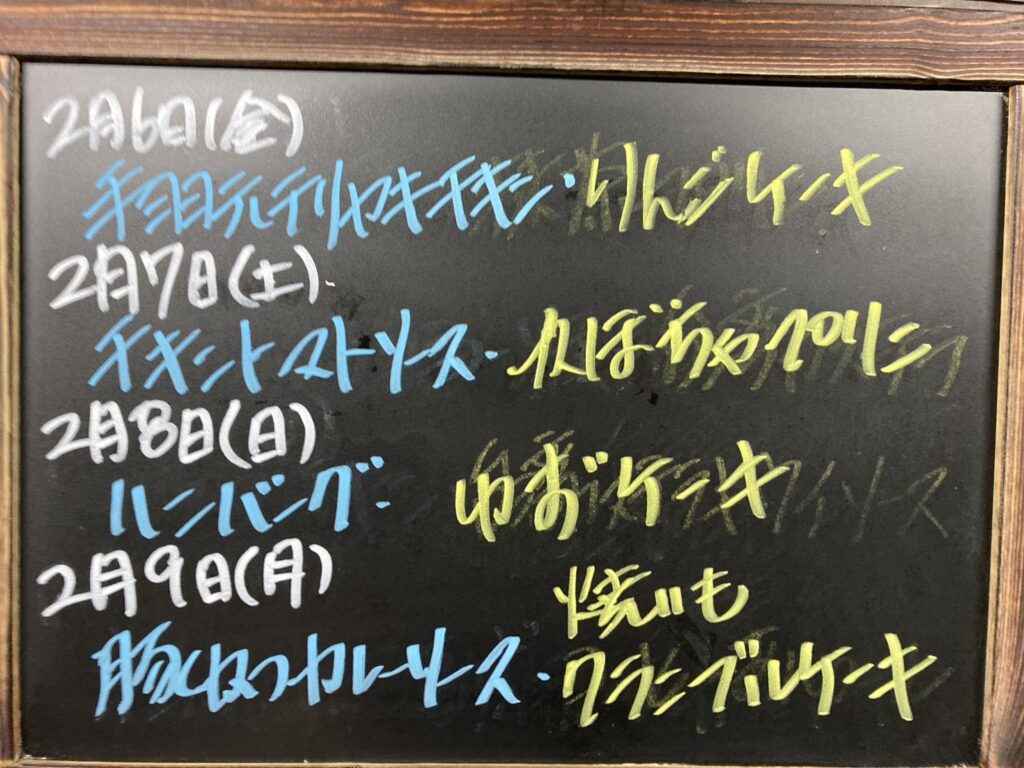 2月6日(金)
チョコラテテリヤキチキン・りんごケーキ
2月7日(土)
チキントマトソース・かぼちゃプリン
2月8日(日)
ハンバーグ・ ゆずケーキ
2月9日(月)
カレーソース・焼いも
クランブルケーキ